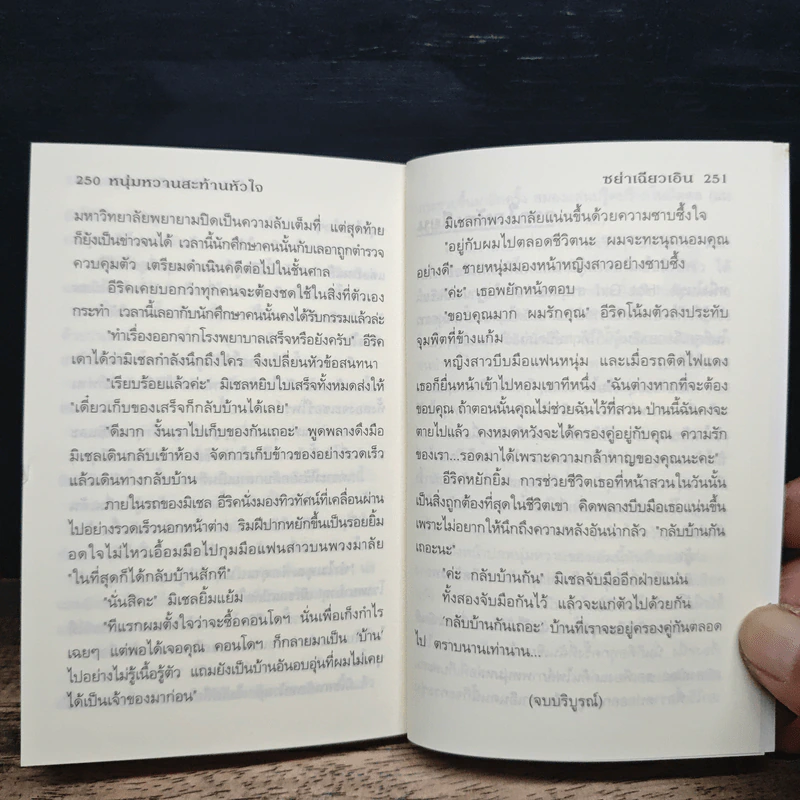 250 หนุ่มหวานสะท้านหัวใจ
มหาวิทยาลัยพยายามปิดเป็นความลับเต็มที่ แต่สุดท้าย
ก็ยังเป็นข่าวจนได้ เวลานี้นักศึกษาคนนั้นกับเลอาถูกตำรวจ
ควบคุมตัว เตรียมดำเนินคดีต่อไปในชั้นศาล
อีริคเคยบอกว่าทุกคนจะต้องชดใช้ในสิ่งที่ตัวเอง
กระทำ เวลานี้เลอากับนักศึกษาคนนั้นคงได้รับกรรมแล้วล่ะ
"ทำเรื่องออกจากโรงพยาบาลเสร็จหรือยังครับ" อีริค
เดาได้ว่ามิเชลกำลังนึกถึงใคร จึงเปลี่ยนหัวข้อสนทนา
"เรียบร้อยแล้วค่ะ" มิเชลหยิบใบเสร็จทั้งหมดส่งให้
"เดี๋ยวเก็บของเสร็จก็กลับบ้านได้เลย"
"ดีมาก งั้นเราไปเก็บของกันเถอะ" พูดพลางดึงมือ
มิเชลเดินกลับเข้าห้อง จัดการเก็บข้าวของอย่างรวดเร็ว
แล้วเดินทางกลับบ้าน
ภายในรถของมิเชล อีริคนั่งมองทิวทัศน์ที่เคลื่อนผ่าน
ไปอย่างรวดเร็วนอกหน้าต่าง ริมฝีปากหยักขึ้นเป็นรอยยิ้ม
อดใจไม่ไหวเอื้อมมือไปกุมมือแฟนสาวบนพวงมาลัย
"ในที่สุดก็ได้กลับบ้านสักที"
"นั่นสิคะ" มิเชลยิ้มแย้ม
"ทีแรกผมตั้งใจว่าจะซื้อคอนโดฯ นั่นเพื่อเก็งกำไร
เฉยๆ แต่พอได้เจอคุณ คอนโดฯ ก็กลายมาเป็น 'บ้าน'
ไปอย่างไม่รู้เนื้อรู้ตัว แถมยังเป็นบ้านอันอบอุ่นที่ผมไม่เคย
ได้เป็นเจ้าของมาก่อน"
ซย่าเฉียวเอิน 251
มิเชลกำพวงมาลัยแน่นขึ้นด้วยความซาบซึ้งใจ
"อยู่กับผมไปตลอดชีวิตนะ ผมจะทะนุถนอมคุณ
อย่างดี" ชายหนุ่มมองหน้าหญิงสาวอย่างซาบซึ้ง
"ค่ะ" เธอพยักหน้าตอบ
"ขอบคุณมาก ผมรักคุณ" อีริคโน้มตัวลงประทับ
จุมพิตที่ข้างแก้ม
หญิงสาวบีบมือแฟนหนุ่ม และเมื่อรถติดไฟแดง
เธอก็ยื่นหน้าเข้าไปหอมเขาทีหนึ่ง "ฉันต่างหากที่จะต้อง
ขอบคุณ ถ้าตอนนั้นคุณไม่ช่วยฉันไว้ที่สวน ป่านนี้ฉันคงจะ
ตายไปแล้ว คงหมดหวังจะได้ครองคู่อยู่กับคุณ ความรัก
ของเรา...รอดมาได้เพราะความกล้าหาญของคุณนะคะ"
อีริคหยักยิ้ม การช่วยชีวิตเธอที่หน้าสวนในวันนั้น
เป็นสิ่งถูกต้องที่สุดในชีวิตเขา คิดพลางบีบมือเธอแน่นขึ้น
เพราะไม่อยากให้นึกถึงความหลังอันน่ากลัว "กลับบ้านกัน
เถอะนะ"
"ค่ะ กลับบ้านกัน" มิเชลจับมืออีกฝ่ายแน่น
ทั้งสองจับมือกันไว้ แล้วจะแก่ตัวไปด้วยกัน
'กลับบ้านกันเถอะ' บ้านที่เราจะอยู่ครองคู่กันตลอด
ไป ตราบนานเท่านาน...
(จบบริบูรณ์)